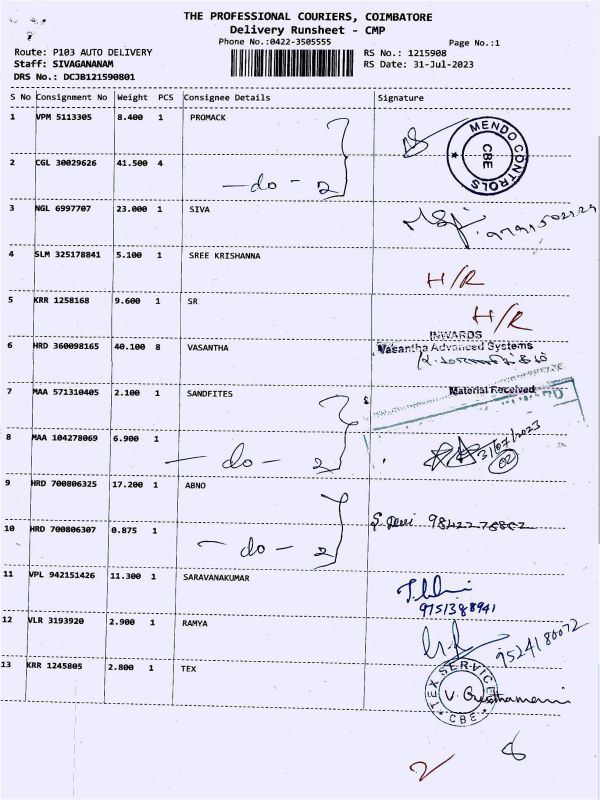 THE PROFESSIONAL COURIERS, COIMBATORE
Delivery Runsheet - CMP
Phone No.:0422-3505555
Page No.:1
Route: P103 AUTO DELIVERY
RS No.: 1215908
Staff: SIVAGANANAM
RS Date: 31-Jul-2023
DRS No.: DCJB121590801
S No Consignment No Weight PCS Consignee Details Signature
1 VPM 5113305 8.400 1 PROMACK
MENDO CONTROLS
CBE
2 CGL 30029626 41.500 4
- do - 2
3 NGL 6997707 23.000 1 SIVA
4 SLM 325178841 5.100 1 SREE KRISHANNA
H/R
5 KRR 1258168 9.600 1 SR
H/R
INWARDS
6 HRD 360098165 40.100 8 VASANTHA
Vasantha Advanced Systems
Material Received
7 MAA 571310405 2.100 1 SANDFITES
8 MAA 104278069 6.900 1
- do - 2
31/07/2023
02
9 HRD 700806325 17.200 1 ABNO
10 HRD 700806307 0.875 1
- do - 2
11 VPL 942151426 11.300 1 SARAVANAKUMAR
9751388941
12 VLR 3193920 2.900 1 RAMYA
9524180072
13 KRR 1245805 2.800 1 TEX
TEX SERVICE
CBE
2
8